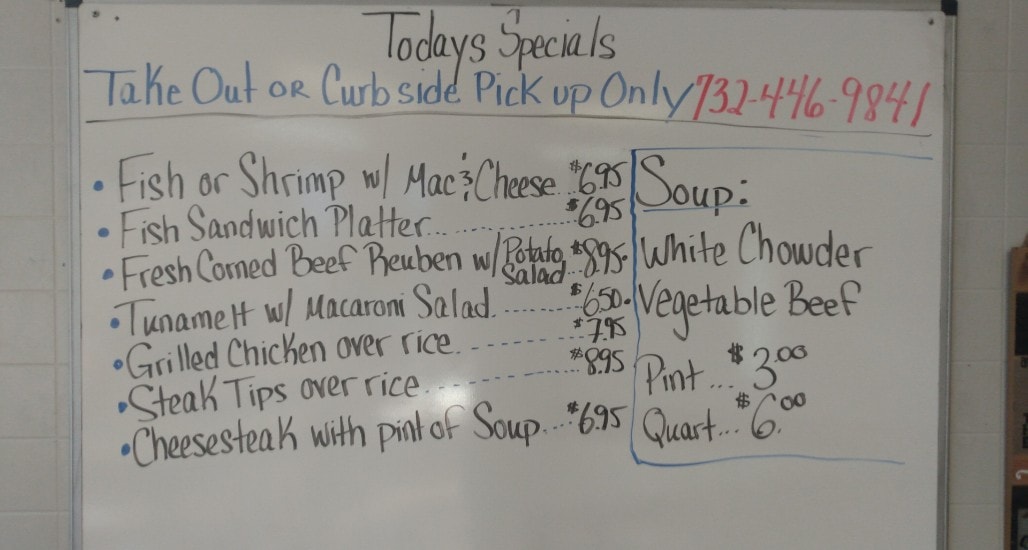 Todays Specials
Take Out OR Curbside Pick up Only 732-446-9841
• Fish or Shrimp w/ Mac & Cheese... $6.95
• Fish Sandwich Platter... $6.95
• Fresh Corned Beef Reuben w/ Potato Salad... $8.95
• Tunamelt w/ Macaroni Salad... $6.50
• Grilled Chicken over rice... $7.95
• Steak Tips over rice... $8.95
• Cheesesteak with pint of Soup... $6.95
Soup:
• White Chowder
• Vegetable Beef
Pint... $3.00
Quart... $6.00